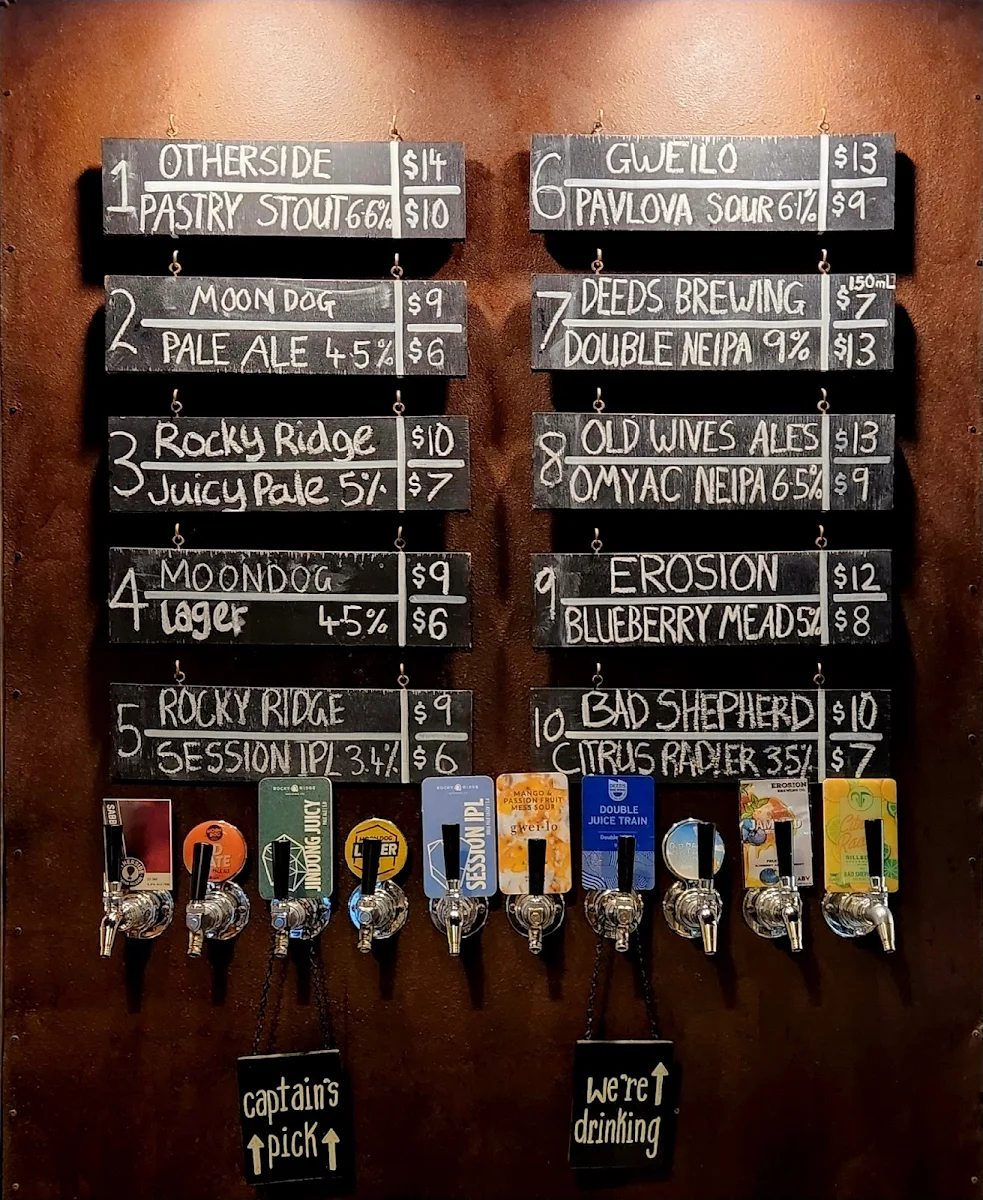 1 OTHERSIDE $14
PASTRY STOUT 6·6% $10
2 MOON DOG $9
PALE ALE 4·5% $6
3 Rocky Ridge $10
Juicy Pale 5% $7
4 MOONDOG $9
Lager 4·5% $6
5 ROCKY RIDGE $9
SESSION IPL 3.4% $6
6 GWEILO $13
PAVLOVA SOUR 6·1% $9
7 DEEDS BREWING $7 150mL
DOUBLE NEIPA 9% $13
8 OLD WIVES ALES $13
OMYAC NEIPA 6·5% $9
9 EROSION $12
BLUEBERRY MEAD 5% $8
10 BAD SHEPHERD $10
CITRUS RADLER 3.5% $7
ROCKY RIDGE
JINDONG JUICY
MOON DOG
LAGER
ROCKY RIDGE
SESSION IPL
MANGO &
PASSION FRUIT
MESS SOUR
gweilo
DEEDS
DOUBLE
JUICE TRAIN
EROSION
captain's
↑pick↑
we're↑
drinking